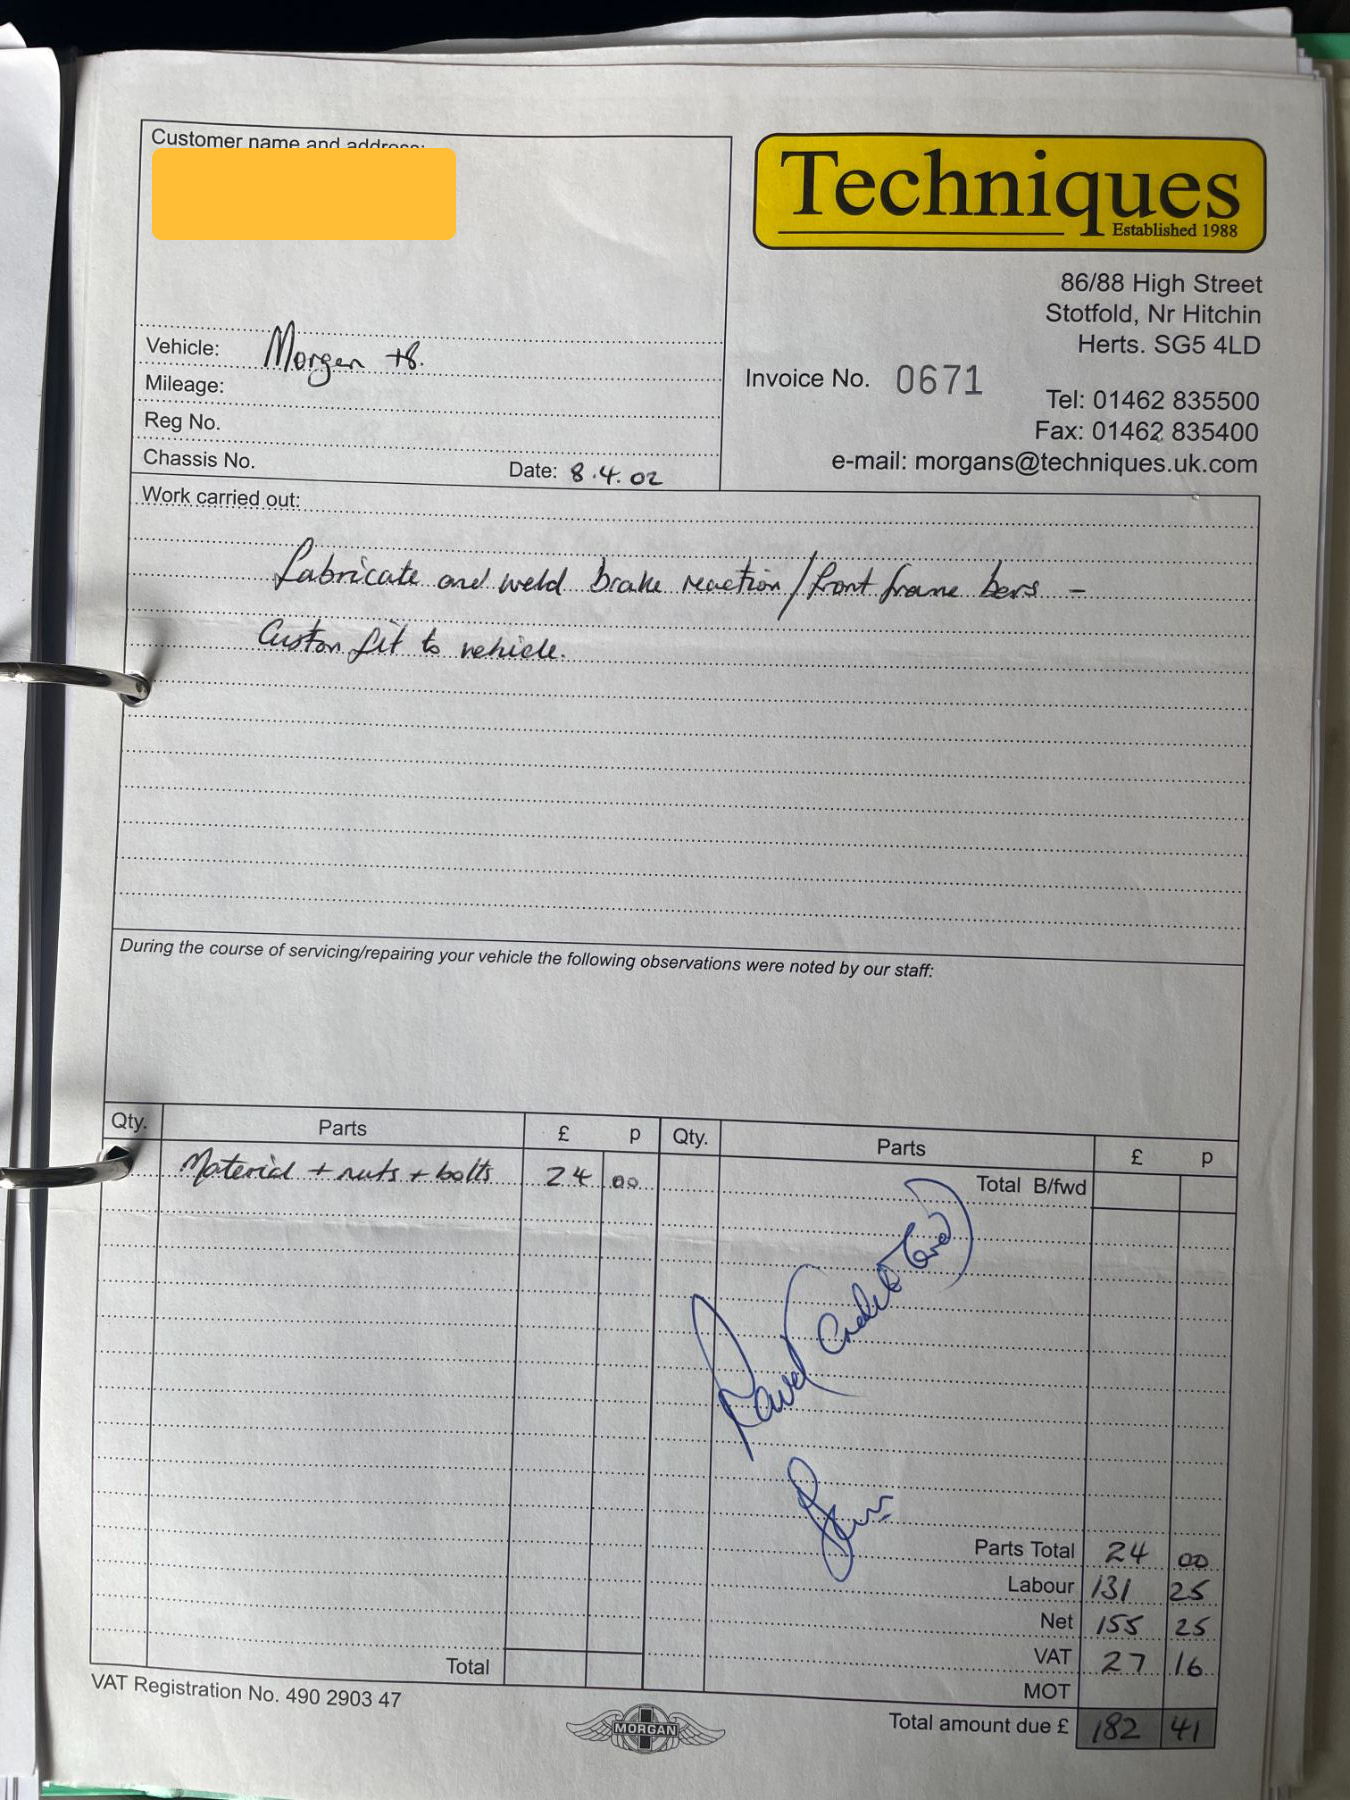 Customer name and address:
Techniques
Established 1988
86/88 High Street
Stotfold, Nr Hitchin
Herts. SG5 4LD
Vehicle: Morgan +8.
Mileage:
Reg No.
Chassis No.
Date: 8.4.02
Invoice No. 0671
Tel: 01462 835500
Fax: 01462 835400
e-mail: morgans@techniques.uk.com
Work carried out:
Fabricate and weld brake reaction/front frame bars –
Custom fit to vehicle.
During the course of servicing/repairing your vehicle the following observations were noted by our staff:
Qty. Parts £ p Qty. Parts £ p
Material + nuts + bolts 24 00
Total B/fwd
(Credit Card)
Parts Total 24 00
Labour 131 25
Net 155 25
VAT 27 16
MOT
Total
Total amount due £ 182 41
VAT Registration No. 490 2903 47
MORGAN